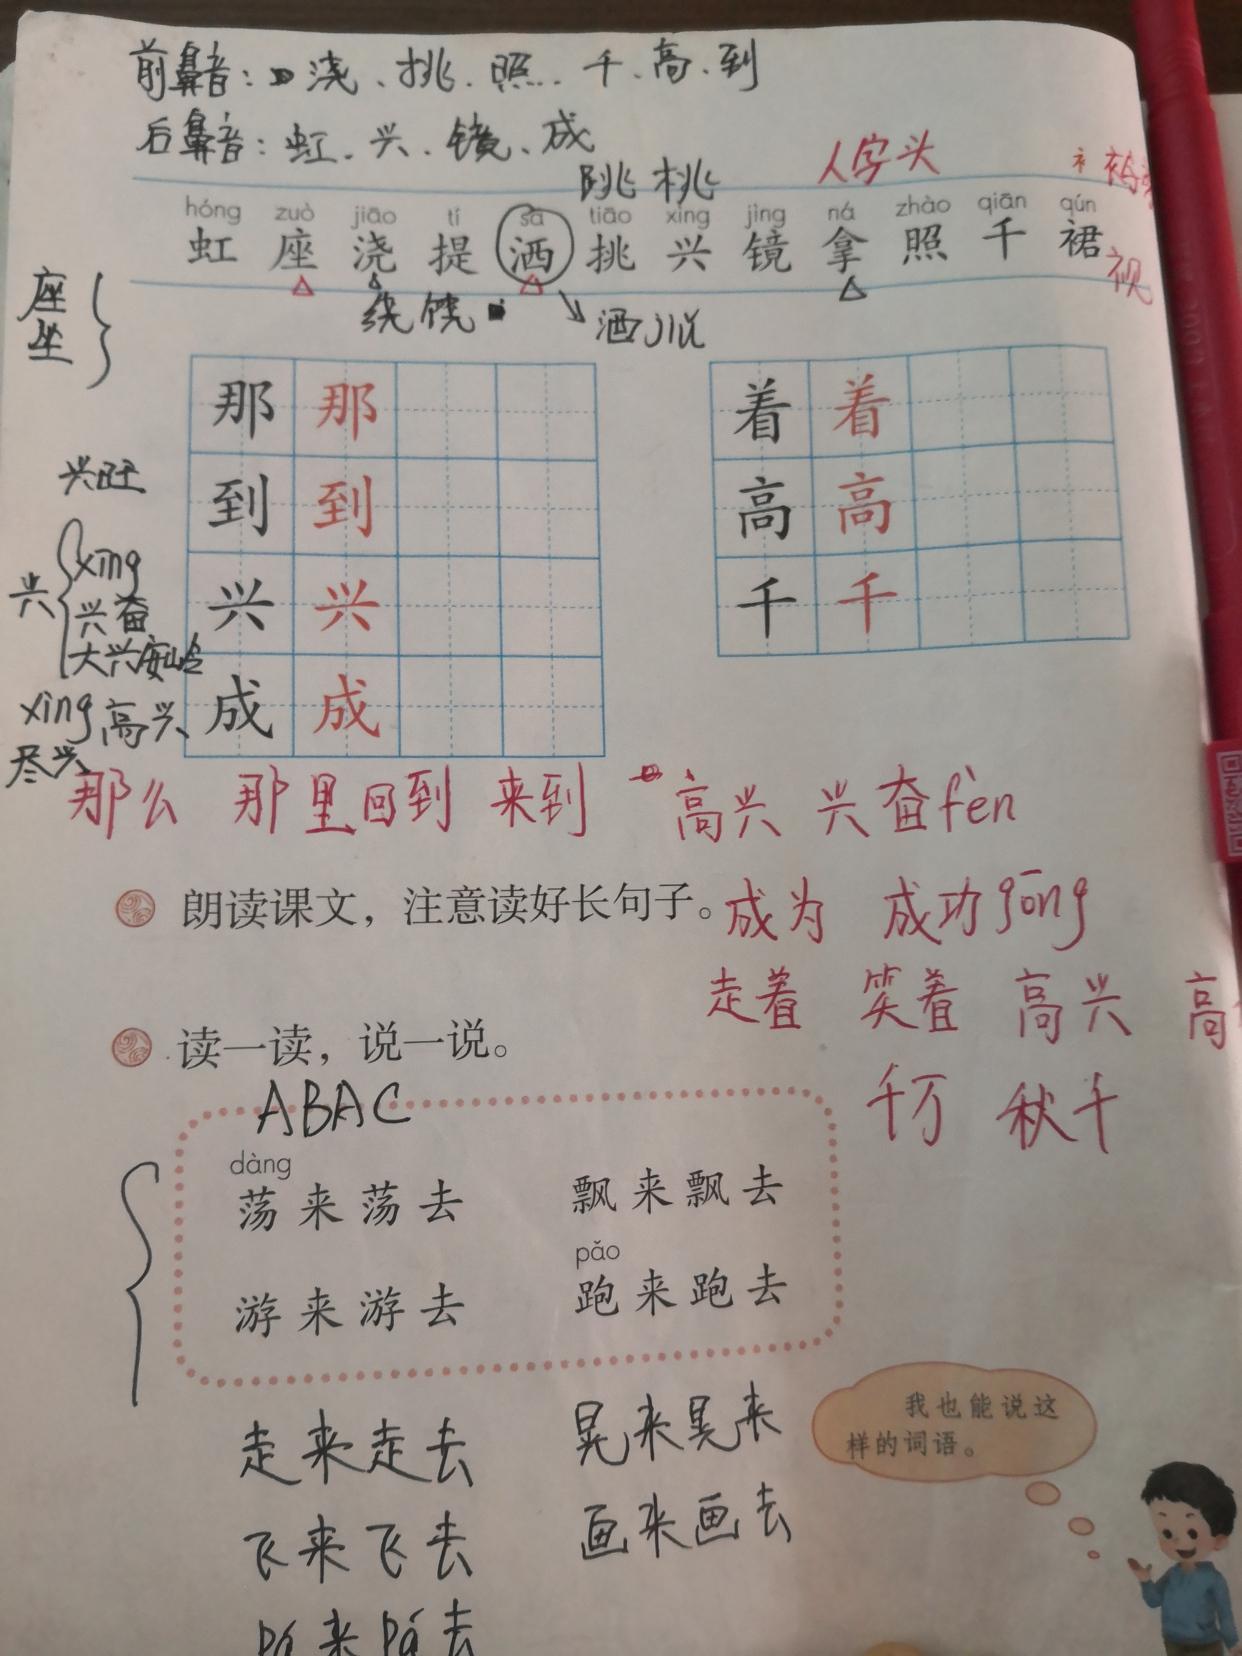 前鼻音：浇、挑、照、千、高、到
后鼻音：虹、兴、镜、成
跳 桃 人字头 衤
hóng zuò jiāo tí sǎ tiāo xìng jìng ná zhào qiān qún
虹 座 浇 提 洒 挑 兴 镜 拿 照 千 裙
视
绕 饶 洒 jiǔ
座
坐
那 那 着 着
到 到 高 高
兴 兴 千 千
成 成
兴旺
兴 xīng
兴奋
大兴安岭
xìng 高兴
尽兴
那么 那里 回到 来到 高兴 兴奋 fèn
朗读课文，注意读好长句子。
成为 成功 gōng
走着 笑着 高兴 高
读一读，说一说。
千万 秋千
ABAC
dàng
荡来荡去 飘来飘去
pǎo
游来游去 跑来跑去
走来走去 晃来晃来
飞来飞去 画来画去
pá来pá去
我也能说这
样的词语。